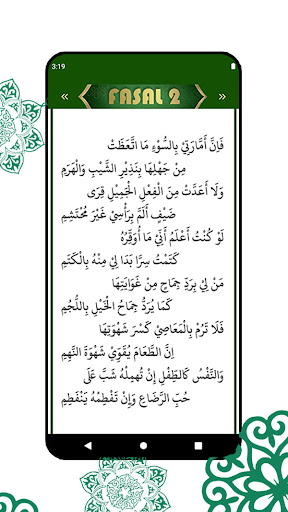 3:19
« FASAL 2 »
فَإِنَّ أَمَّارَتِيْ بِالسُّوْءِ مَا اتَّعَظَتْ
مِنْ جَهْلِهَا بِنَذِيْرِ الشَّيْبِ وَالْهَرَمِ
وَلَا أَعَدَّتْ مِنَ الْفِعْلِ الْجَمِيْلِ قِرَى
ضَيْفٍ أَلَمَّ بِرَأْسِيْ غَيْرَ مُحْتَشِمِ
لَوْ كُنْتُ أَعْلَمُ أَنِّيْ مَا أُوَقِّرُهُ
كَتَمْتُ سِرًّا بَدَا لِيْ مِنْهُ بِالْكَتَمِ
مَنْ لِيْ بِرَدِّ جِمَاحٍ مِنْ غَوَايَتِهَا
كَمَا يُرَدُّ جِمَاحُ الْخَيْلِ بِاللُّجُمِ
فَلَا تَرُمْ بِالْمَعَاصِيْ كَسْرَ شَهْوَتِهَا
اِنَّ الطَّعَامَ يُقَوِّيْ شَهْوَةَ النَّهِمِ
وَالنَّفْسُ كَالطِّفْلِ إِنْ تُهْمِلْهُ شَبَّ عَلَى
حُبِّ الرَّضَاعِ وَإِنْ تَفْطِمْهُ يَنْفَطِمِ